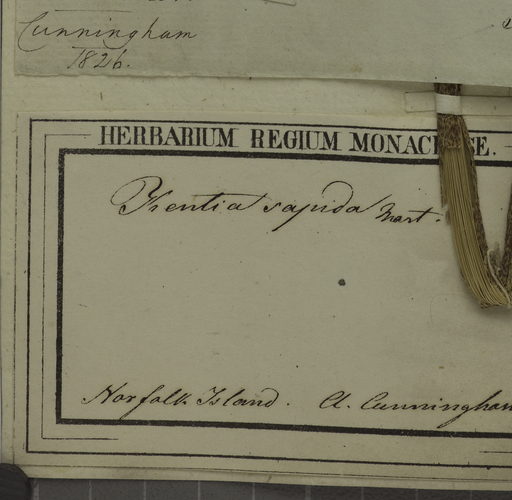 Cunningham
1826.
HERBARIUM REGIUM MONACENSE.
Kentia sapida Mart.
Norfolk Island. A. Cunningham